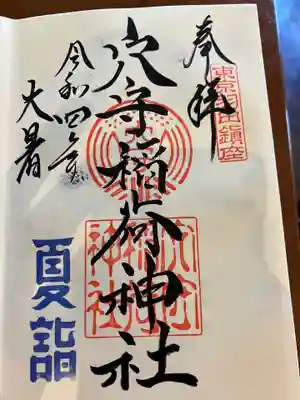 奉拝
東京羽田鎮座
穴守稲荷神社
穴守稲荷神社
令和四年
大暑
夏詣